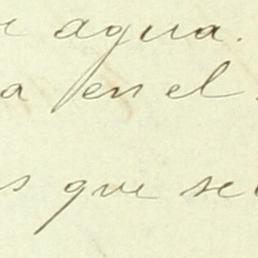 agua.
en el
que se